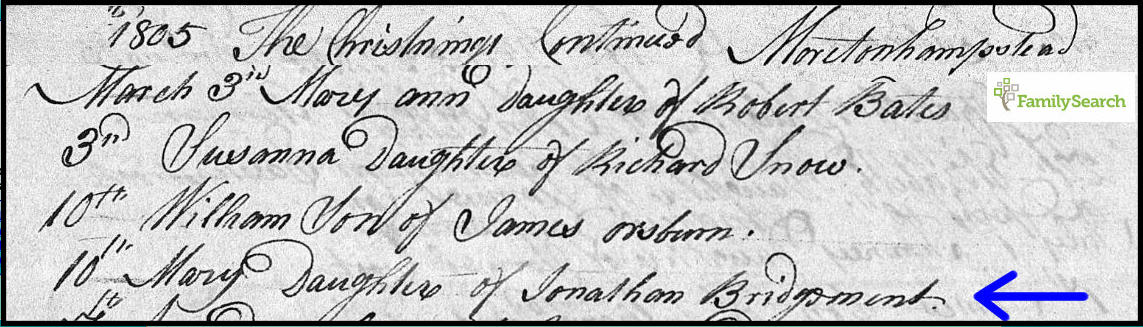 1805 The Christnings Continued Moretonhampstead
March 3rd Mary ann Daughter of Robert Bates
FamilySearch
3rd Susanna Daughter of Richard Snow.
10th William Son of James orsburn.
10th Mary Daughter of Jonathan Bridgment